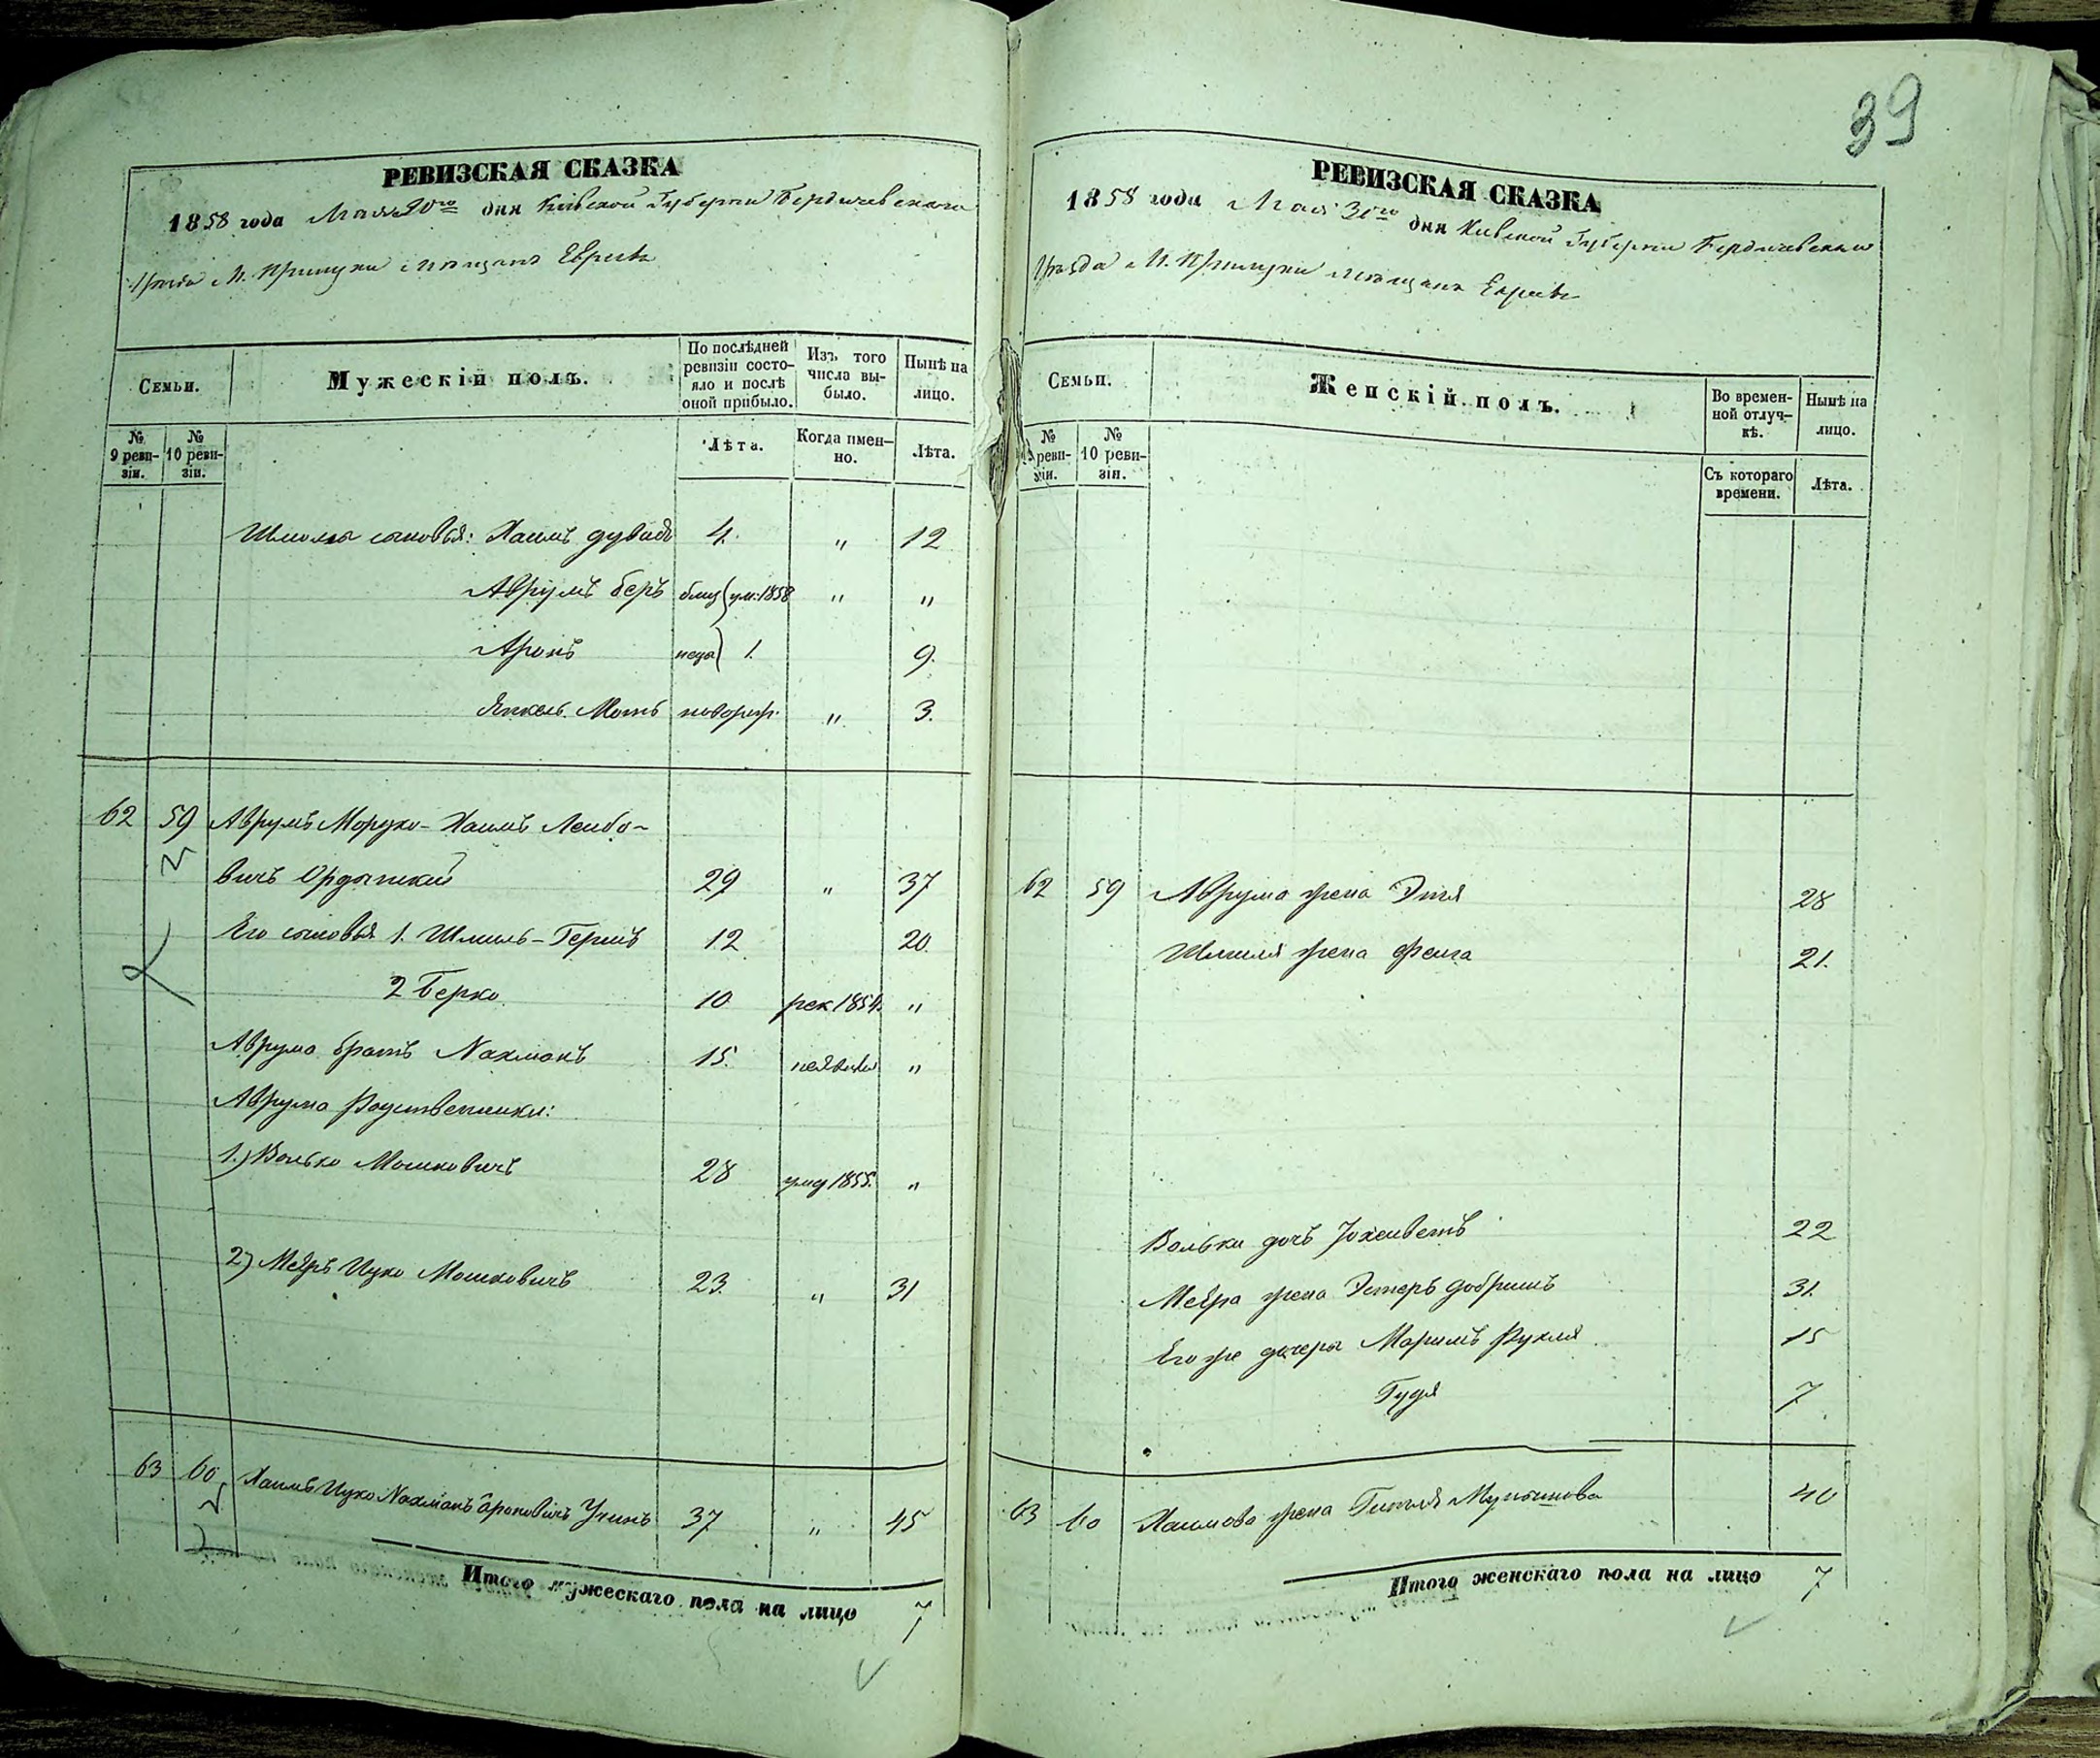 39
РЕВИЗСКАЯ СКАЗКА
1858 года Мая 30го дня Кіевской Губерніи Бердичевскаго
Уѣзда М. Прилуки мѣщанъ Евреевъ
Семьи.
Мужескій полъ.
По послѣдней ревизіи состояло и послѣ оной прибыло.
Изъ того числа выбыло.
Нынѣ на лицо.
№ 9 ревизіи.
№ 10 ревизіи.
Лѣта.
Когда именно.
Лѣта.
Шмолы сыновья: Хаимъ дувидъ 4. " 12
Аврумъ беръ ум: 1858 " "
Аронъ 1. 9.
Янкель. Мотъ новорож. " 3.
62 59 Аврумъ Мордко-Хаимъ Лейбо-
вичъ Ордынскій 29 " 37
Его сыновья 1. Шмиль-Гершъ 12 20.
2 Берко 10 рек 1854. "
Аврума братъ Нахманъ 15. неявки "
Аврума Родственники:
1.) Волько Мошковичъ 28 умер 1855. "
2) Меѣръ Ицко Мошковичъ 23. " 31
63 60 Хаимъ Ицко Нахманъ Ароновичъ 37 " 45
Итого мужескаго пола на лицо 7
РЕВИЗСКАЯ СКАЗКА
1858 года Мая 30го дня Кіевской Губерніи Бердичевскаго
Уѣзда М. Прилуки мѣщанъ Евреевъ
Семьи.
Женскій полъ.
Во временной отлучкѣ.
Нынѣ на лицо.
№ ревизіи.
№ 10 ревизіи.
Съ котораго времени.
Лѣта.
62 59 Аврума жена Этя 28
Шмиля жена Фейга 21.
Вольки дочь Іохеветъ 22
Меѣра жена Эстеръ добришъ 31.
Его же дочеры Маримъ Рухля 15
Гудя 7
63 60 Хаимова жена 40
Итого женскаго пола на лицо 7